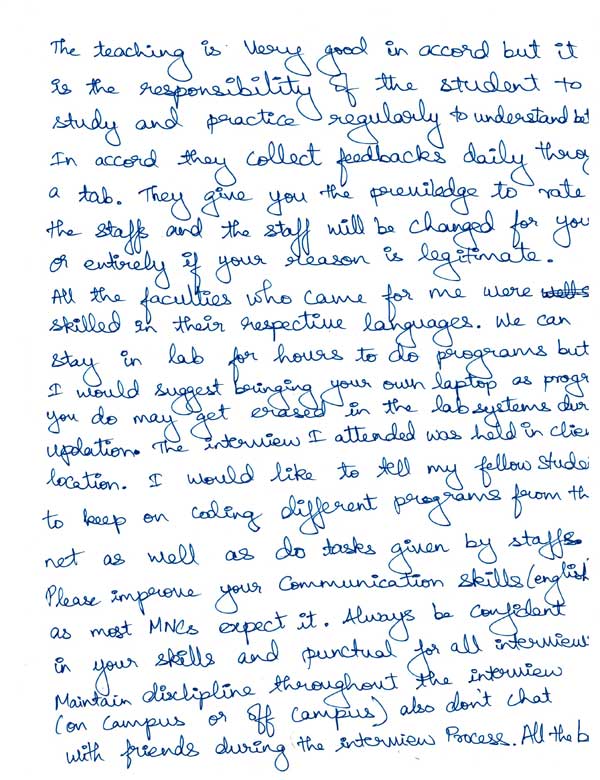 The teaching is very good in accord but it
is the responsibility of the student to
study and practice regularly to understand bet
In accord they collect feedbacks daily throug
a tab. They give you the previledge to rate
the staffs and the staff will be changed for you
or entirely if your reason is legitimate.
All the faculties who came for me were wells
skilled in their respective languages. We can
stay in lab for hours to do programs but
I would suggest bringing your own laptop as progr
you do may get erased in the lab systems dur
updation. The interview I attended was held in clien
location. I would like to tell my fellow studen
to keep on coding different programs from th
net as well as do tasks given by staffs.
Please improve your communication skills (english)
as most MNCs expect it. Always be confident
in your skills and punctual for all interviews
Maintain disclipline throughout the interview
(on campus or off campus) also don't chat
with friends during the interview Process. All the b